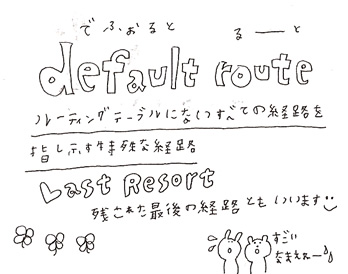 でふぉると るーと
default route
ルーティングテーブルにないすべての経路を
指し示す特殊な経路
Last Resort
残された最後の経路ともいいます
すごい
なまえだー